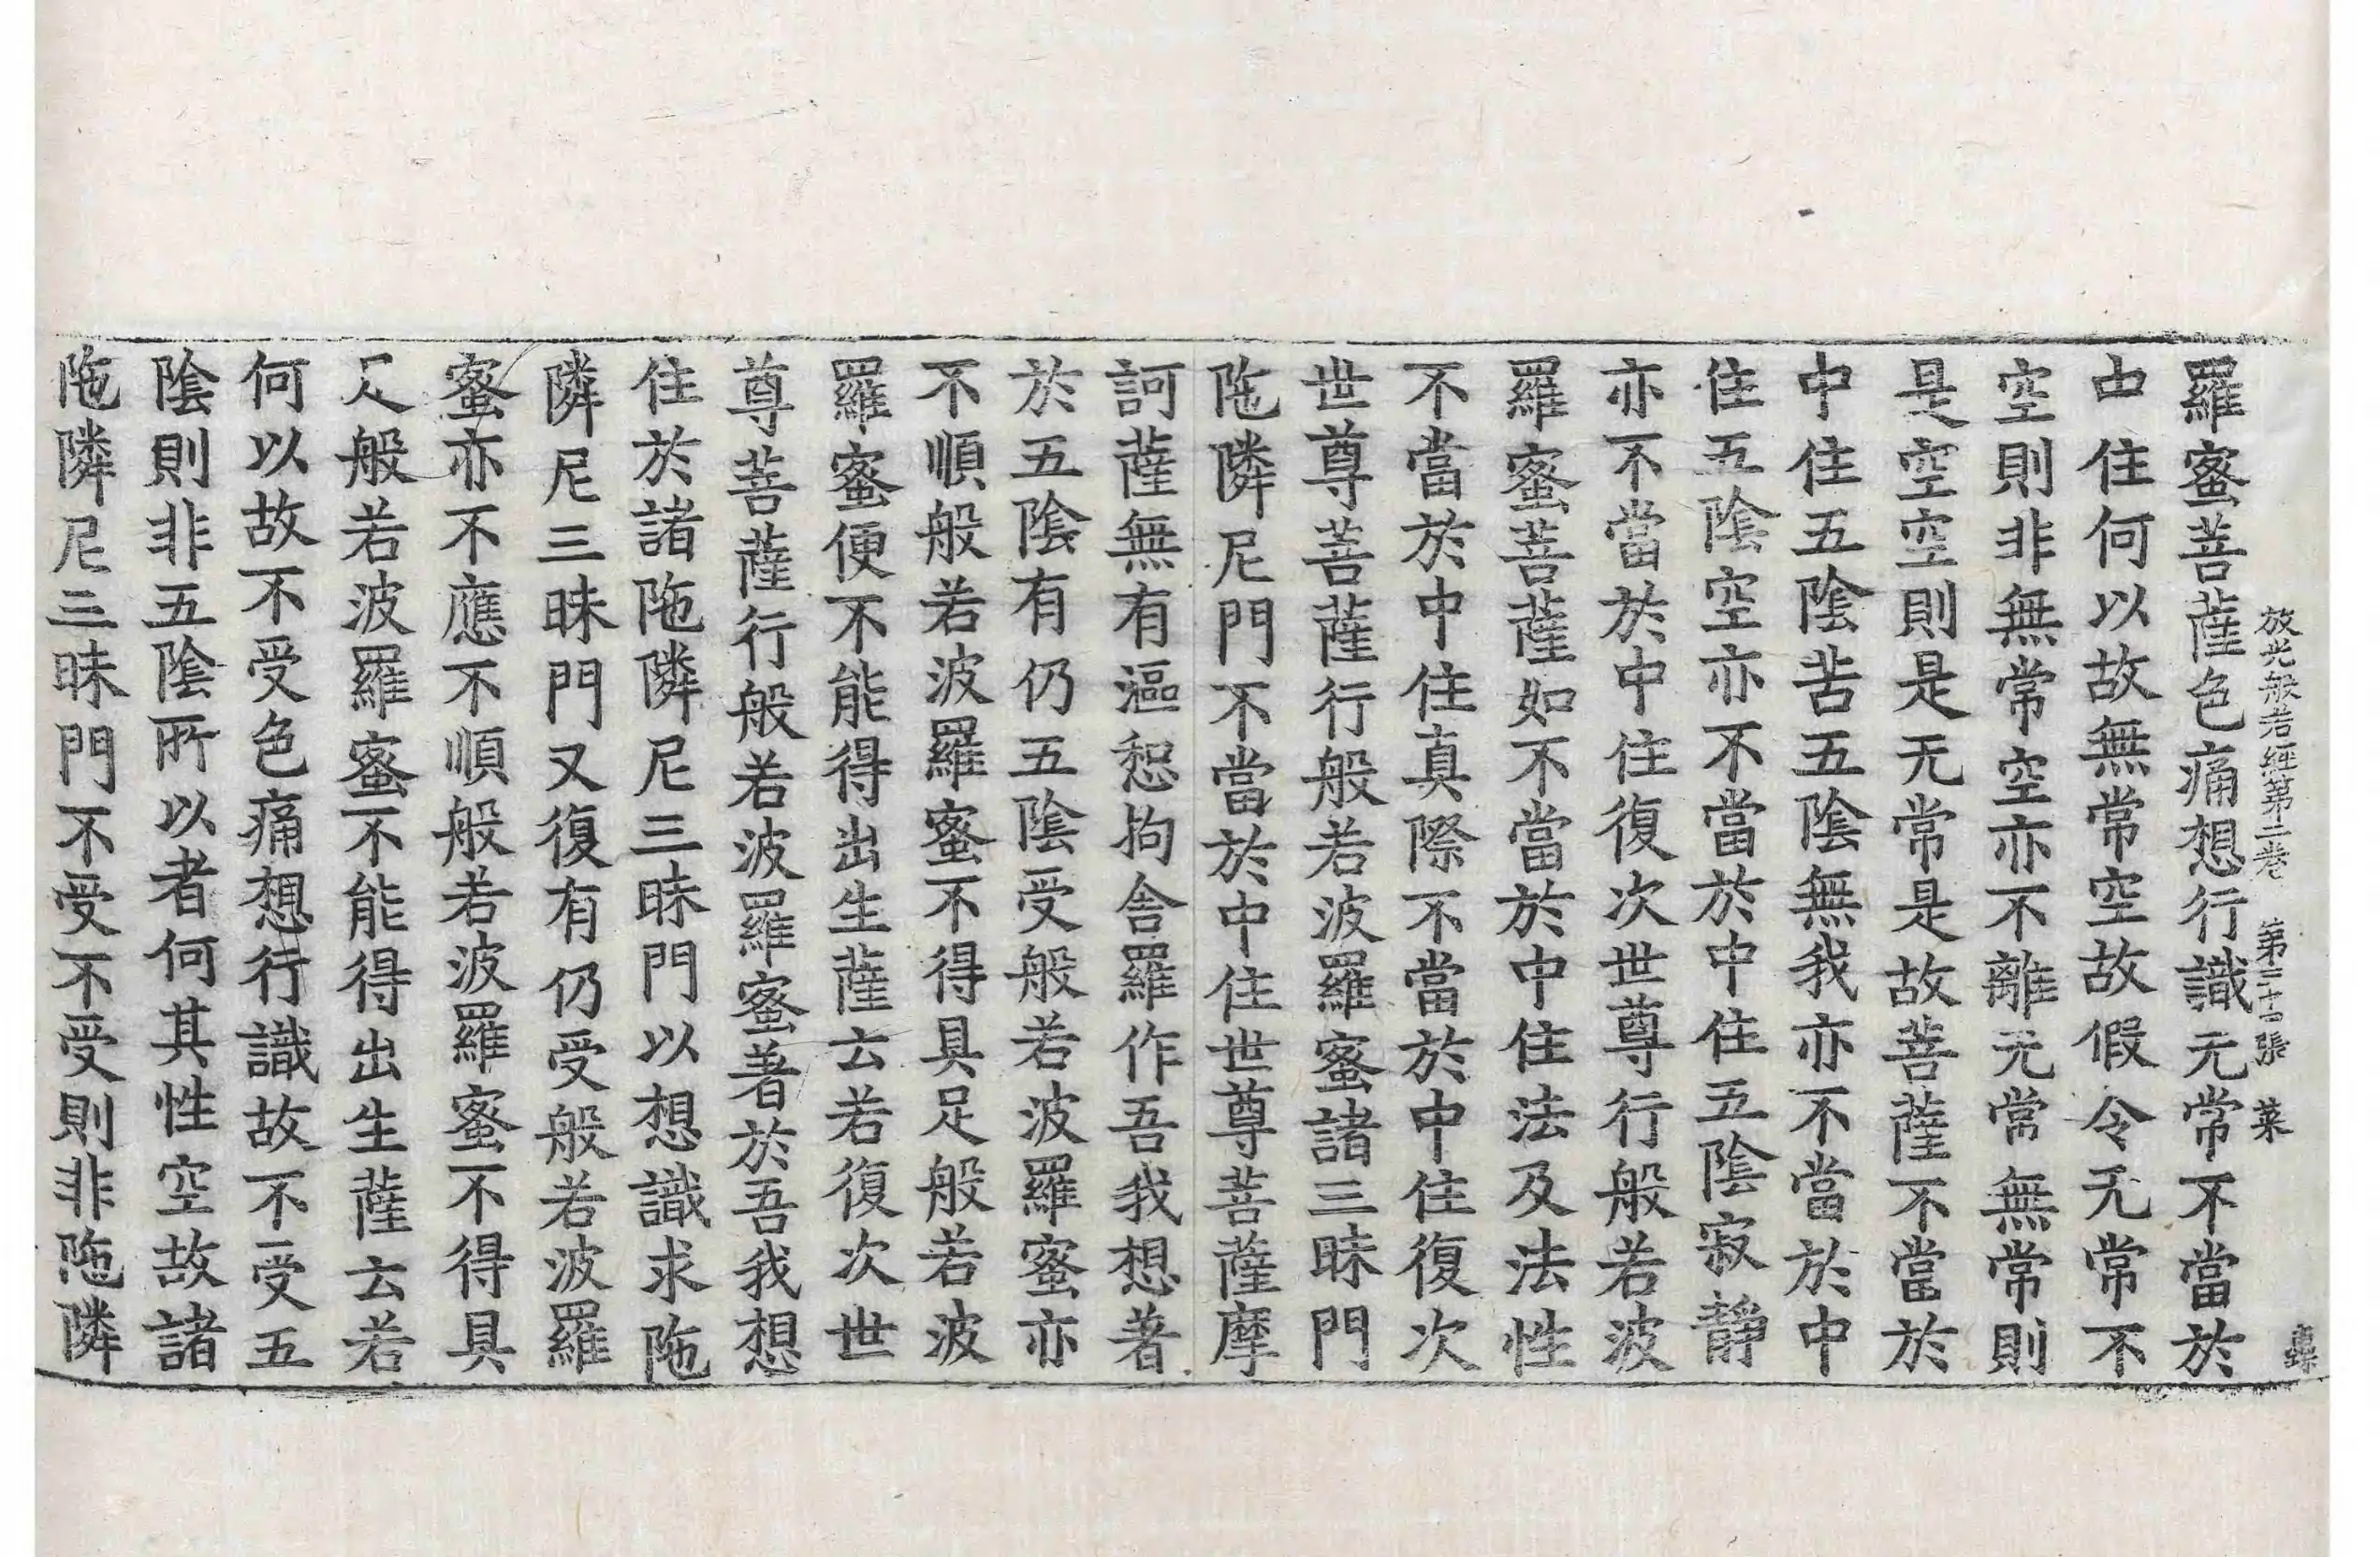 放光般若經第二卷　第二十古張　菜
羅蜜菩薩色痛想行識无常不當於
中住何以故無常空故假令无常不
空則非無常空亦不離无常無常則
是空空則是无常是故菩薩不當於
中住五陰苦五陰無我亦不當於中
住五陰空亦不當於中住五陰寂靜
亦不當於中住復次世尊行般若波
羅蜜菩薩如不當於中住法及法性
不當於中住真際不當於中住復次
世尊菩薩行般若波羅蜜諸三昧門
陁隣尼門不當於中住世尊菩薩摩
訶薩無有漚恕拘舍羅作吾我想著
於五陰有仍五陰受般若波羅蜜亦
不順般若波羅蜜不得具足般若波
羅蜜便不能得出生薩云若復次世
尊菩薩行般若波羅蜜著於吾我想
住於諸陁隣尼三昧門以想識求陁
隣尼三昧門又復有仍受般若波羅
蜜亦不應不順般若波羅蜜不得具
足般若波羅蜜不能得出生薩云若
何以故不受色痛想行識故不受五
陰則非五陰所以者何其性空故諸
陁隣尼三昧門不受不受則非陁隣